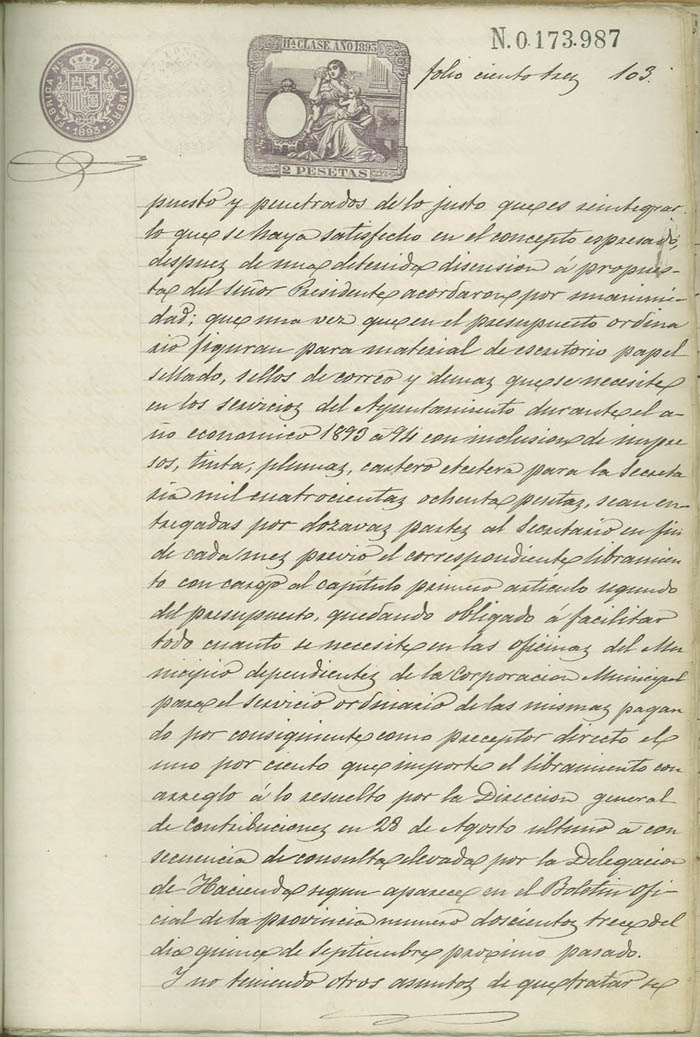 N. 0.173.987
11ª CLASE. AÑO 1893
FABRICA NL. DEL TIMBRE
1893
2 PESETAS
folio ciento trez 103.
puesto y penetrados de lo justo que es reintegrar
lo que se haya satisfecho en el concepto espresado,
despuez de una detenida discusion á propues-
ta del Señor Presidente acordaron por unanimi-
dad; que una vez que en el presupuesto ordina
rio figuran para material de escritorio papel
sellado, sellos de correo y demaz que se necesite
en los servicioz del Ayuntamiento durante el a-
ño economico 1893 á 94 con inclusion de impre
sos, tinta, plumaz, cartero etcetera para la Secreta
ria mil cuatrocientaz ochenta pesetaz, sean en-
tregadas por dozavaz partez al Secretario en fin
de cada mez previo el correspondiente libramien
to con cargo al capítulo primero artículo segundo
del presupuesto, quedando obligado á facilitar
todo cuanto se necesite en las oficinaz del Mu-
nicipio dependientez de la Corporacion Municipal
para el servicio ordinario de las mismaz pagan
do por consiguiente como preceptor directo el
uno por ciento que importe el libramiento con
arreglo á lo resuelto por la Direccion general
de Contribucionez en 28 de Agosto ultimo á con
secuencia de consulta elevada por la Delegacion
de Hacienda segun aparece en el Boletin Ofi-
cial de la provincia numero doscientoz trece del
dia quince de Septiembre proximo pasado.
Y no teniendo otros asuntoz de que tratar se